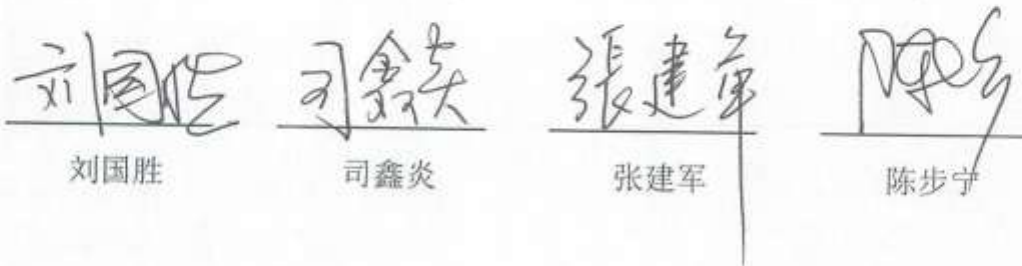 刘国胜 司鑫炎 張建军 陈步宁
刘国胜 司鑫炎 张建军 陈步宁